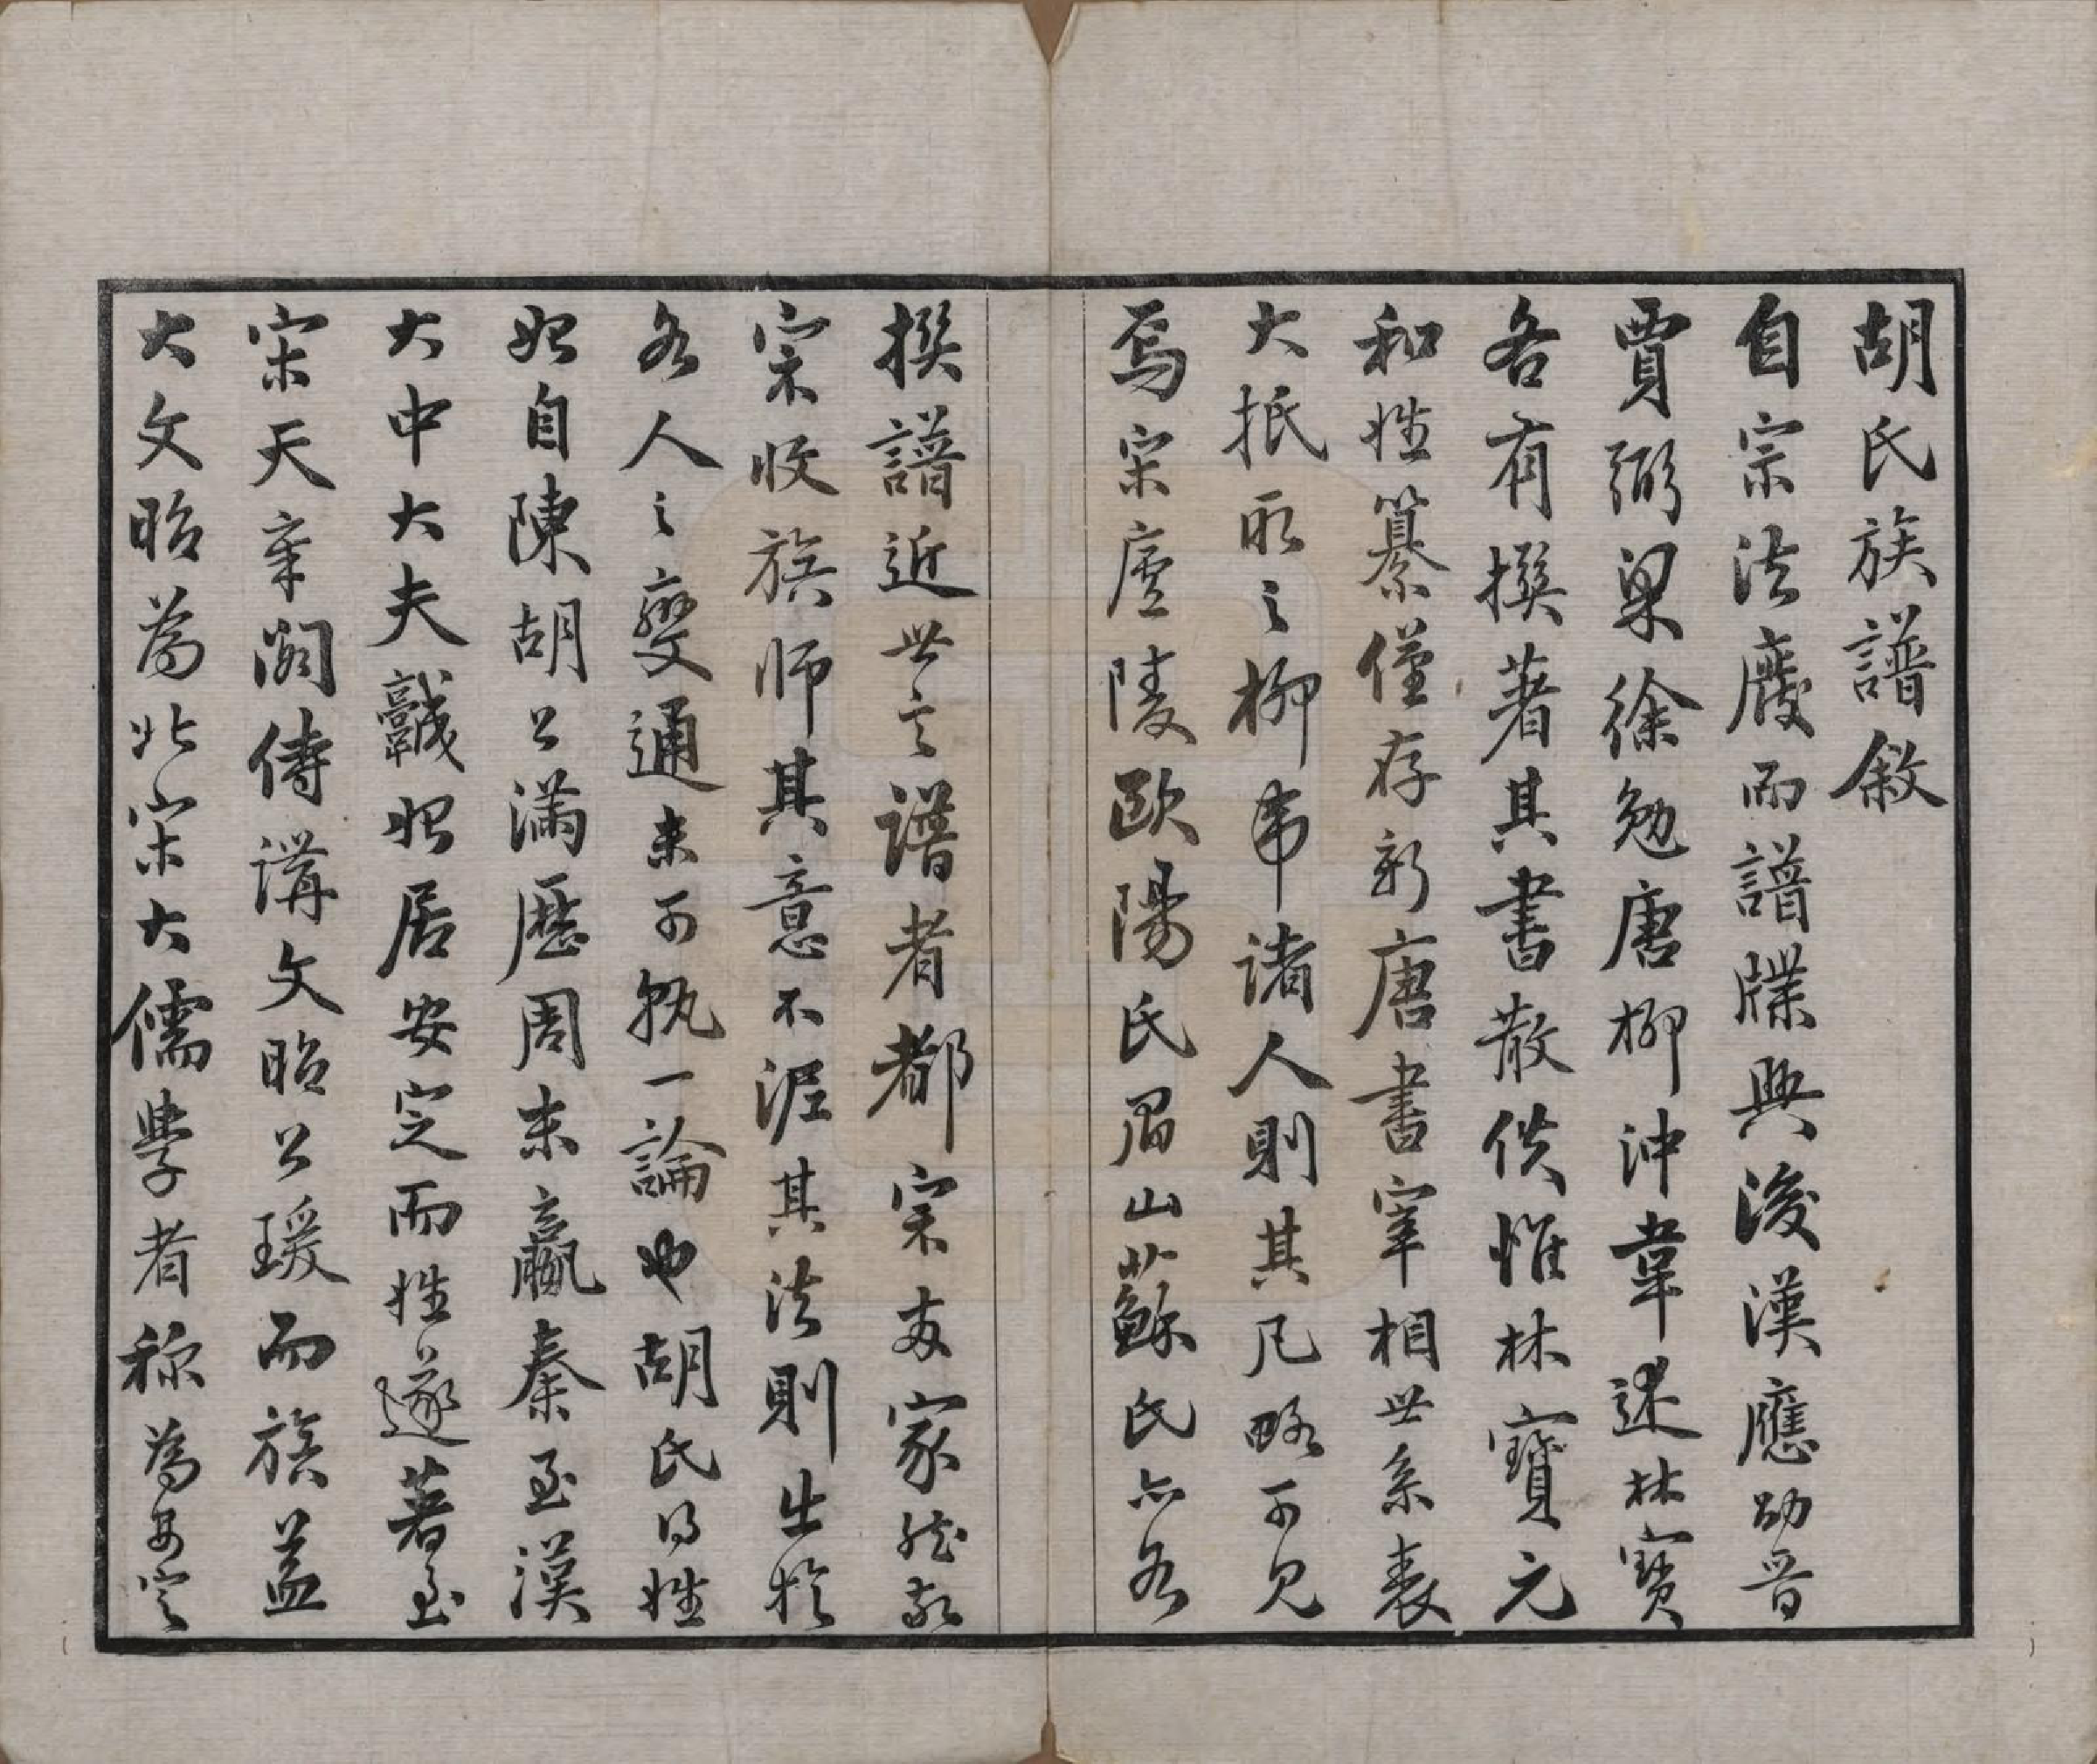 胡氏族譜敘
自宗法廢而譜牒興後漢應劭晉
賈弼梁徐勉唐柳沖韋述林寶
各有撰著其書散佚惟林寶元
和姓纂僅存新唐書宰相世系表
大抵取之柳韋諸人則其凡略可見
焉宋廬陵歐陽氏眉山蘇氏亦各
撰譜近世言譜者都宗兩家然敬
宗收族師其意不泥其法則生於
各人之變通未可執一論也胡氏得姓
始自陳胡公滿歷周末嬴秦至漢
大中大夫識始居安定而姓遂著至
宋天章閣侍講文昭公瑗而族益
大文昭為北宋大儒學者稱為安定